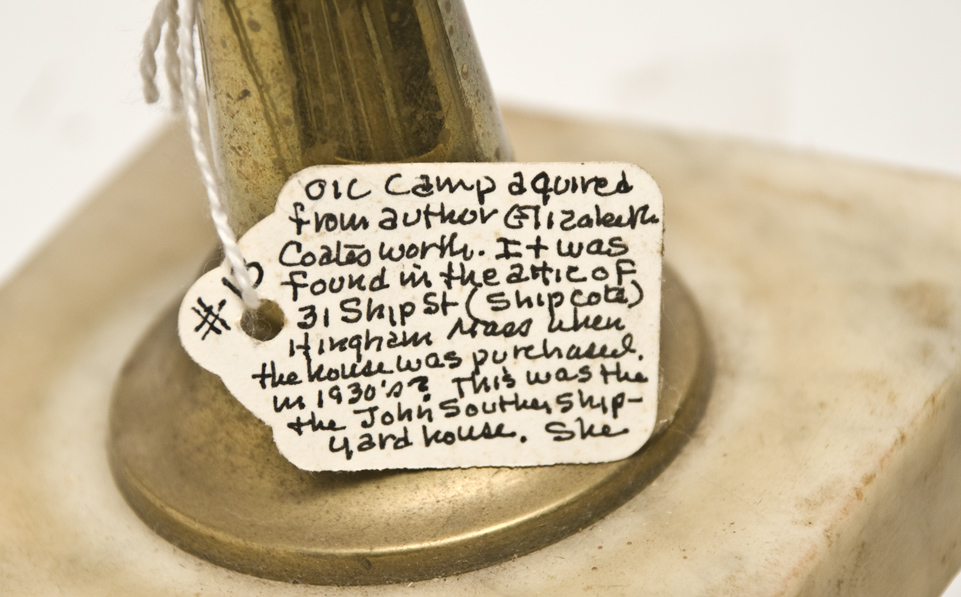 #10
OIL Lamp aquired
from author Elizabeth
Coatsworth. It was
found in the attic of
31 Ship St (Ship cote)
Hingham Mass when
the house was purchased.
in 1930's? This was the
the John Souther Ship-
yard house. She